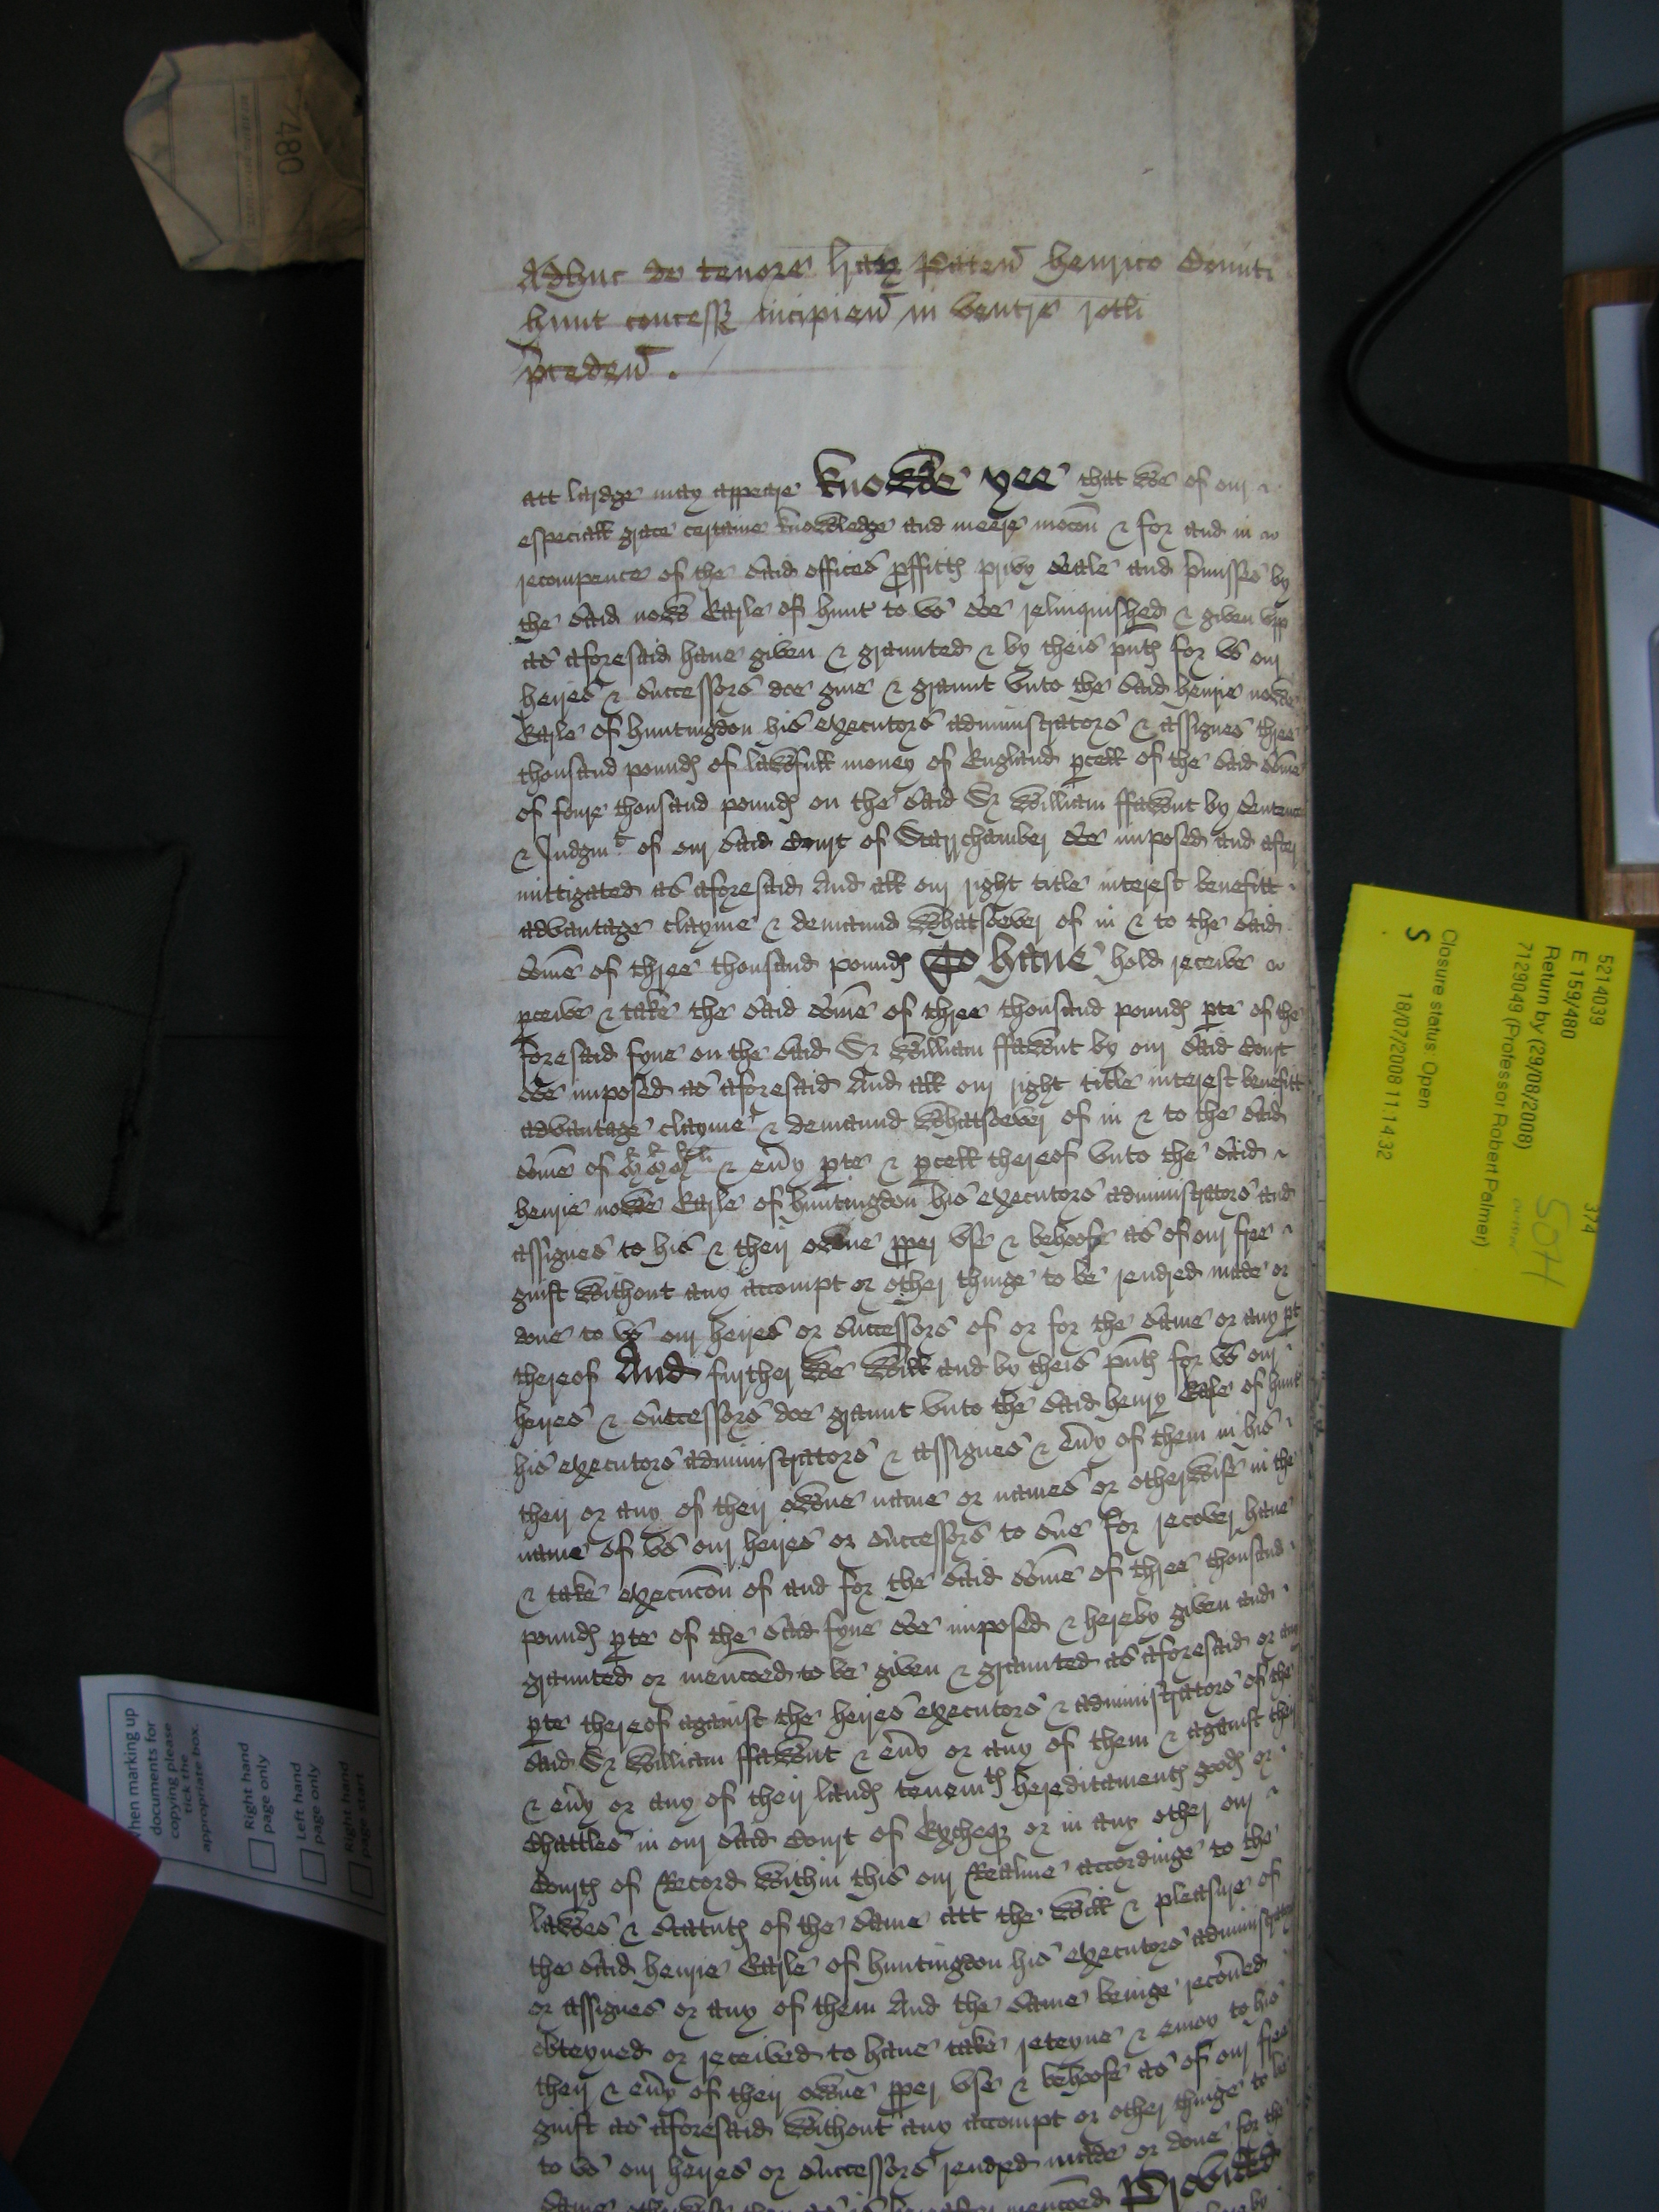 Adhuc de tenore harū paten̄ henrico Comiti
hunt concess̄ incipien̄ in ventre rotli
p̄ceden̄.
att lardge may appeare Knowe yee that we of our
especiall grace certaine knowledge and meere mocōn & for and in
recompence of the said offices p̱ffittes privy seale and p̄misses by
the said nowe Earle of hunt to vs soe relinquished & given vpp
as aforesaid haue given & graunted & by theis p̄ntes for vs our
heires & successors doe giue & graunt vnto the said henrie nowe
Earle of huntingdon his executors administrators & assignes three
thousand poundes of lawfull money of England p̱cell of the said som̄e
of foure thousand poundes on the said Sr William ffawnt by sentence
& Judgmt of our said Court of Starrchamber soe imposed and after
mittigated as aforesaid And all our right title interest benefitt
advantage clayme & demaund whatsoever of in & to the said
som̄e of three thousand poundes To haue hold receive
p̱ceive & take the said som̄e of three thousand poundes p̱te of the
foresaid fyne on the said Sr William ffawnt by our said Court
soe imposed as aforesaid And all our right title interest benefitt
advantage clayme & demaund whatsoever of in & to the said
som̄e of & ev̄y p̱te & p̱cell thereof vnto the said
henrie nowe Earle of huntingdon his executors administrators and
assignes to his & their owne pp̱er vse & behoofe as of our free
guift without any accompt or other thinge to be rendred made or
done to vs our heires or successors of or for the same or any pt
thereof And further we will and by theis p̄ntes for vs our
heires & successors doe graunt vnto the said henry Earle of hunt
his executors administrators & assignes & ev̄y of them in his
their or any of their owne name or names or otherwise in the
name of vs our heires or successors to sue for recover haue
& take execucōn of and for the said som̄e of three thousand
poundes p̱te of the said fyne soe imposed & hereby given and
graunted or mencōed to be given & graunted as aforesaid or any
p̱te thereof against the heires executors & administrators of the
said Sr William ffawnt & ev̄y or any of them & against their
& ev̄y or any of their landes tenemtes hereditamentes goodes or
Chattles in our said Court of Excheqr or in any other our
Courtes of Record within this our Realme accordinge to the
lawes & statutes of the same att the will & pleasure of
the said henrie Earle of huntingdon his executors administrators
or assignes or any of them And the same beinge recov̄ed
obteyned or received to haue take reteyne & enioy to his
their & ev̄y of their owne pp̱er vse & behoofe as of our free
guift as aforesaid without any accompt or other thinge to be
to vs our heires or successors rendred made or done for the
same otherwise then as is hereafter mencōed Provided
480
5214039
E 159/480
Return by (29/08/2008)
7129049 (Professor Robert Palmer)
Closure status: Open
S 18/07/2008 11:14:32
374
SOH
When marking up
documents for
copying please
tick the
appropriate box.
Right hand
page only
Left hand
page only
Right hand
page start